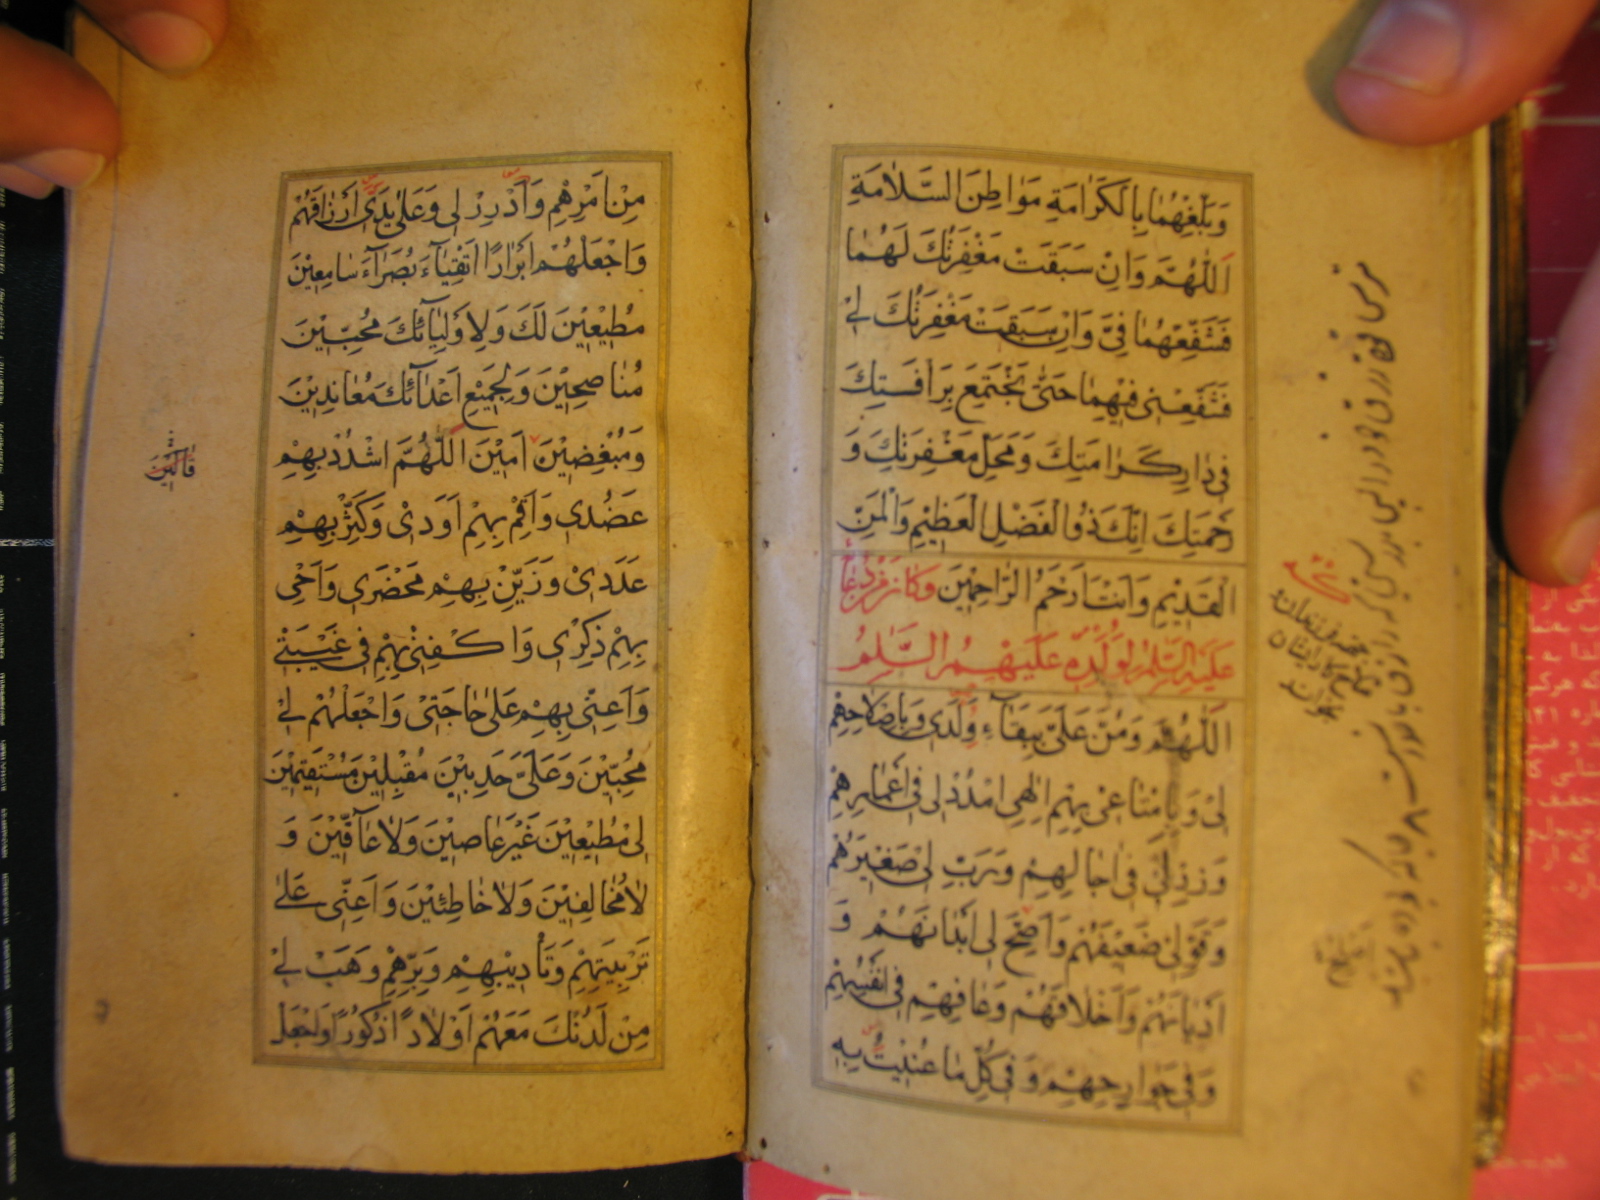 وَبَلِّغْهُمَا بِالْكَرَامَةِ مَوَاطِنَ السَّلَامَةِ
اَللّٰهُمَّ وَاِنْ سَبَقَتْ مَغْفِرَتُكَ لَهُمَا
فَشَفِّعْهُمَا فِيَّ وَاِنْ سَبَقَتْ مَغْفِرَتُكَ لِيْ
فَشَفِّعْنِي فِيْهِمَا حَتّٰى نَجْتَمِعَ بِرَأْفَتِكَ
فِي دَارِ كَرَامَتِكَ وَمَحَلِّ مَغْفِرَتِكَ وَ
رَحْمَتِكَ اِنَّكَ ذُوالْفَضْلِ الْعَظِيْمِ وَالْمَنِّ
الْقَدِيْمِ وَاَنْتَ اَرْحَمُ الرَّاحِمِيْنَ وَكَانَ مِنْ دُعَائِهِ
عَلَيْهِ السَّلٰمُ لِوُلْدِهِ عَلَيْهِمُ السَّلٰمُ
اَللّٰهُمَّ وَمُنَّ عَلَيَّ بِبَقَاءِ وُلْدِي وَبِاِصْلَاحِهِمْ
لِيْ وَبِاِمْتَاعِيْ بِهِمْ اِلٰهِي امْدُدْ لِي فِي اَعْمَارِهِمْ
وَزِدْ لِيْ فِي اٰجَالِهِمْ وَرَبِّ لِيْ صَغِيْرَهُمْ
وَقَوِّ لِيْ ضَعِيْفَهُمْ وَاَصِحَّ لِي اَبْدَانَهُمْ وَ
اَدْيَانَهُمْ وَاَخْلَاقَهُمْ وَعَافِهِمْ فِي اَنْفُسِهِمْ
وَفِي جَوَارِحِهِمْ وَفِي كُلِّ مَا عُنِيْتُ بِهِ
مِنْ اَمْرِهِمْ وَاَدْرِرْ لِي وَعَلٰى يَدِيْ اَرْزَاقَهُمْ
وَاجْعَلْهُمْ اَبْرَارًا اَتْقِيَاءَ بُصَرَاءَ سَامِعِيْنَ
مُطِيْعِيْنَ لَكَ وَلِاَوْلِيَائِكَ مُحِبِّيْنَ
مُنَاصِحِيْنَ وَلِجَمِيْعِ اَعْدَائِكَ مُعَانِدِيْنَ
وَمُبْغِضِيْنَ اٰمِيْنَ اَللّٰهُمَّ اشْدُدْ بِهِمْ
عَضُدِي وَاَقِمْ بِهِمْ اَوَدِيْ وَكَثِّرْ بِهِمْ
عَدَدِيْ وَزَيِّنْ بِهِمْ مَحْضَرِي وَاَحْيِ
بِهِمْ ذِكْرِي وَاكْفِنِيْ بِهِمْ فِي غَيْبَتِيْ
وَاَعِنِّي بِهِمْ عَلٰى حَاجَتِيْ وَاجْعَلْهُمْ لِيْ
مُحِبِّيْنَ وَعَلَيَّ حَدِبِيْنَ مُقْبِلِيْنَ مُسْتَقِيْمِيْنَ
لِيْ مُطِيْعِيْنَ غَيْرَ عَاصِيْنَ وَلَا عَاقِّيْنَ وَ
لَا مُخَالِفِيْنَ وَلَا خَاطِئِيْنَ وَاَعِنِّي عَلٰى
تَرْبِيَتِهِمْ وَتَأْدِيْبِهِمْ وَبِرِّهِمْ وَهَبْ لِيْ
مِنْ لَدُنْكَ مَعَهُمْ اَوْلَادًا ذُكُوْرًا وَاجْعَلْ